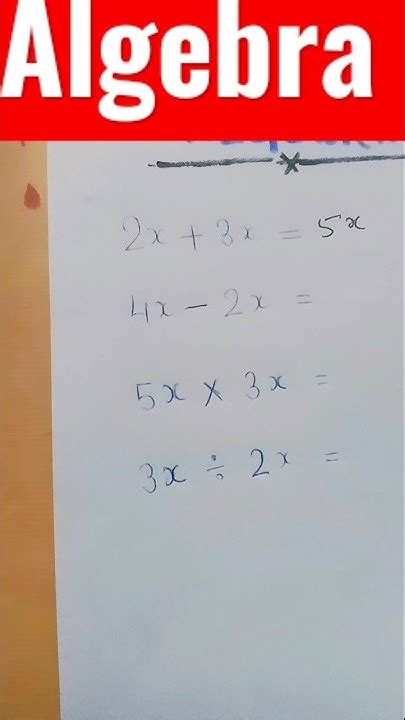 Algebra
2x + 3x = 5x
4x - 2x =
5x × 3x =
3x ÷ 2x =